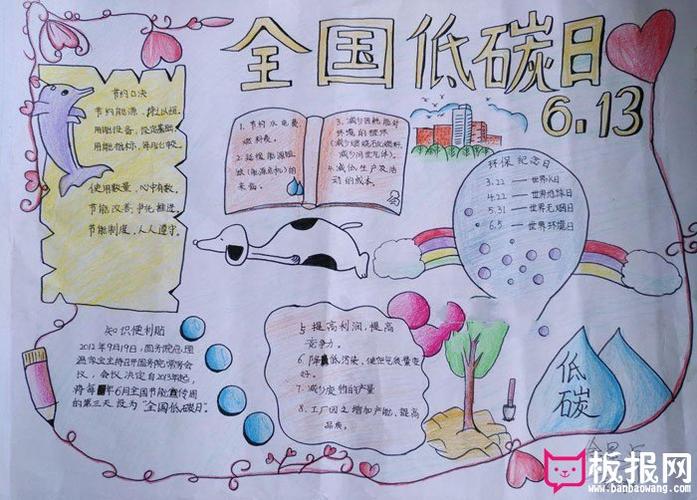 全国低碳日
6.13
节约口决
节约能源，持之以恒。
用能设备，设定基础
用能指标，年年比较。
使用数量，心中有数。
节能改善，争化推进。
节能制度，人人遵守。
1. 节约水电费、
燃料费。
2. 延缓能源短
缺（能源危机）的
来临。
环境的破坏
（减少燃烧石化燃料，
减少温室气体）。
4. 减低生产及活
动的成本。
环保纪念日
3.22 — 世界水日
4.22 — 世界地球日
5.31 — 世界无烟日
6.5 — 世界环境日
知识便利贴
2012年9月19日，国务院总理
温家宝主持召开国务院常务会
议，会议决定自2013年起，
将每年6月全国节能宣传周
的第三天设为“全国低碳日”。
5 提高利润，提高
竞争力。
6. 低污染，使空气质量变
好。
7. 减少废物的产量
8. 工厂因之增加产能，提高
品质。
低
碳
板报网
www.banbaowang.com